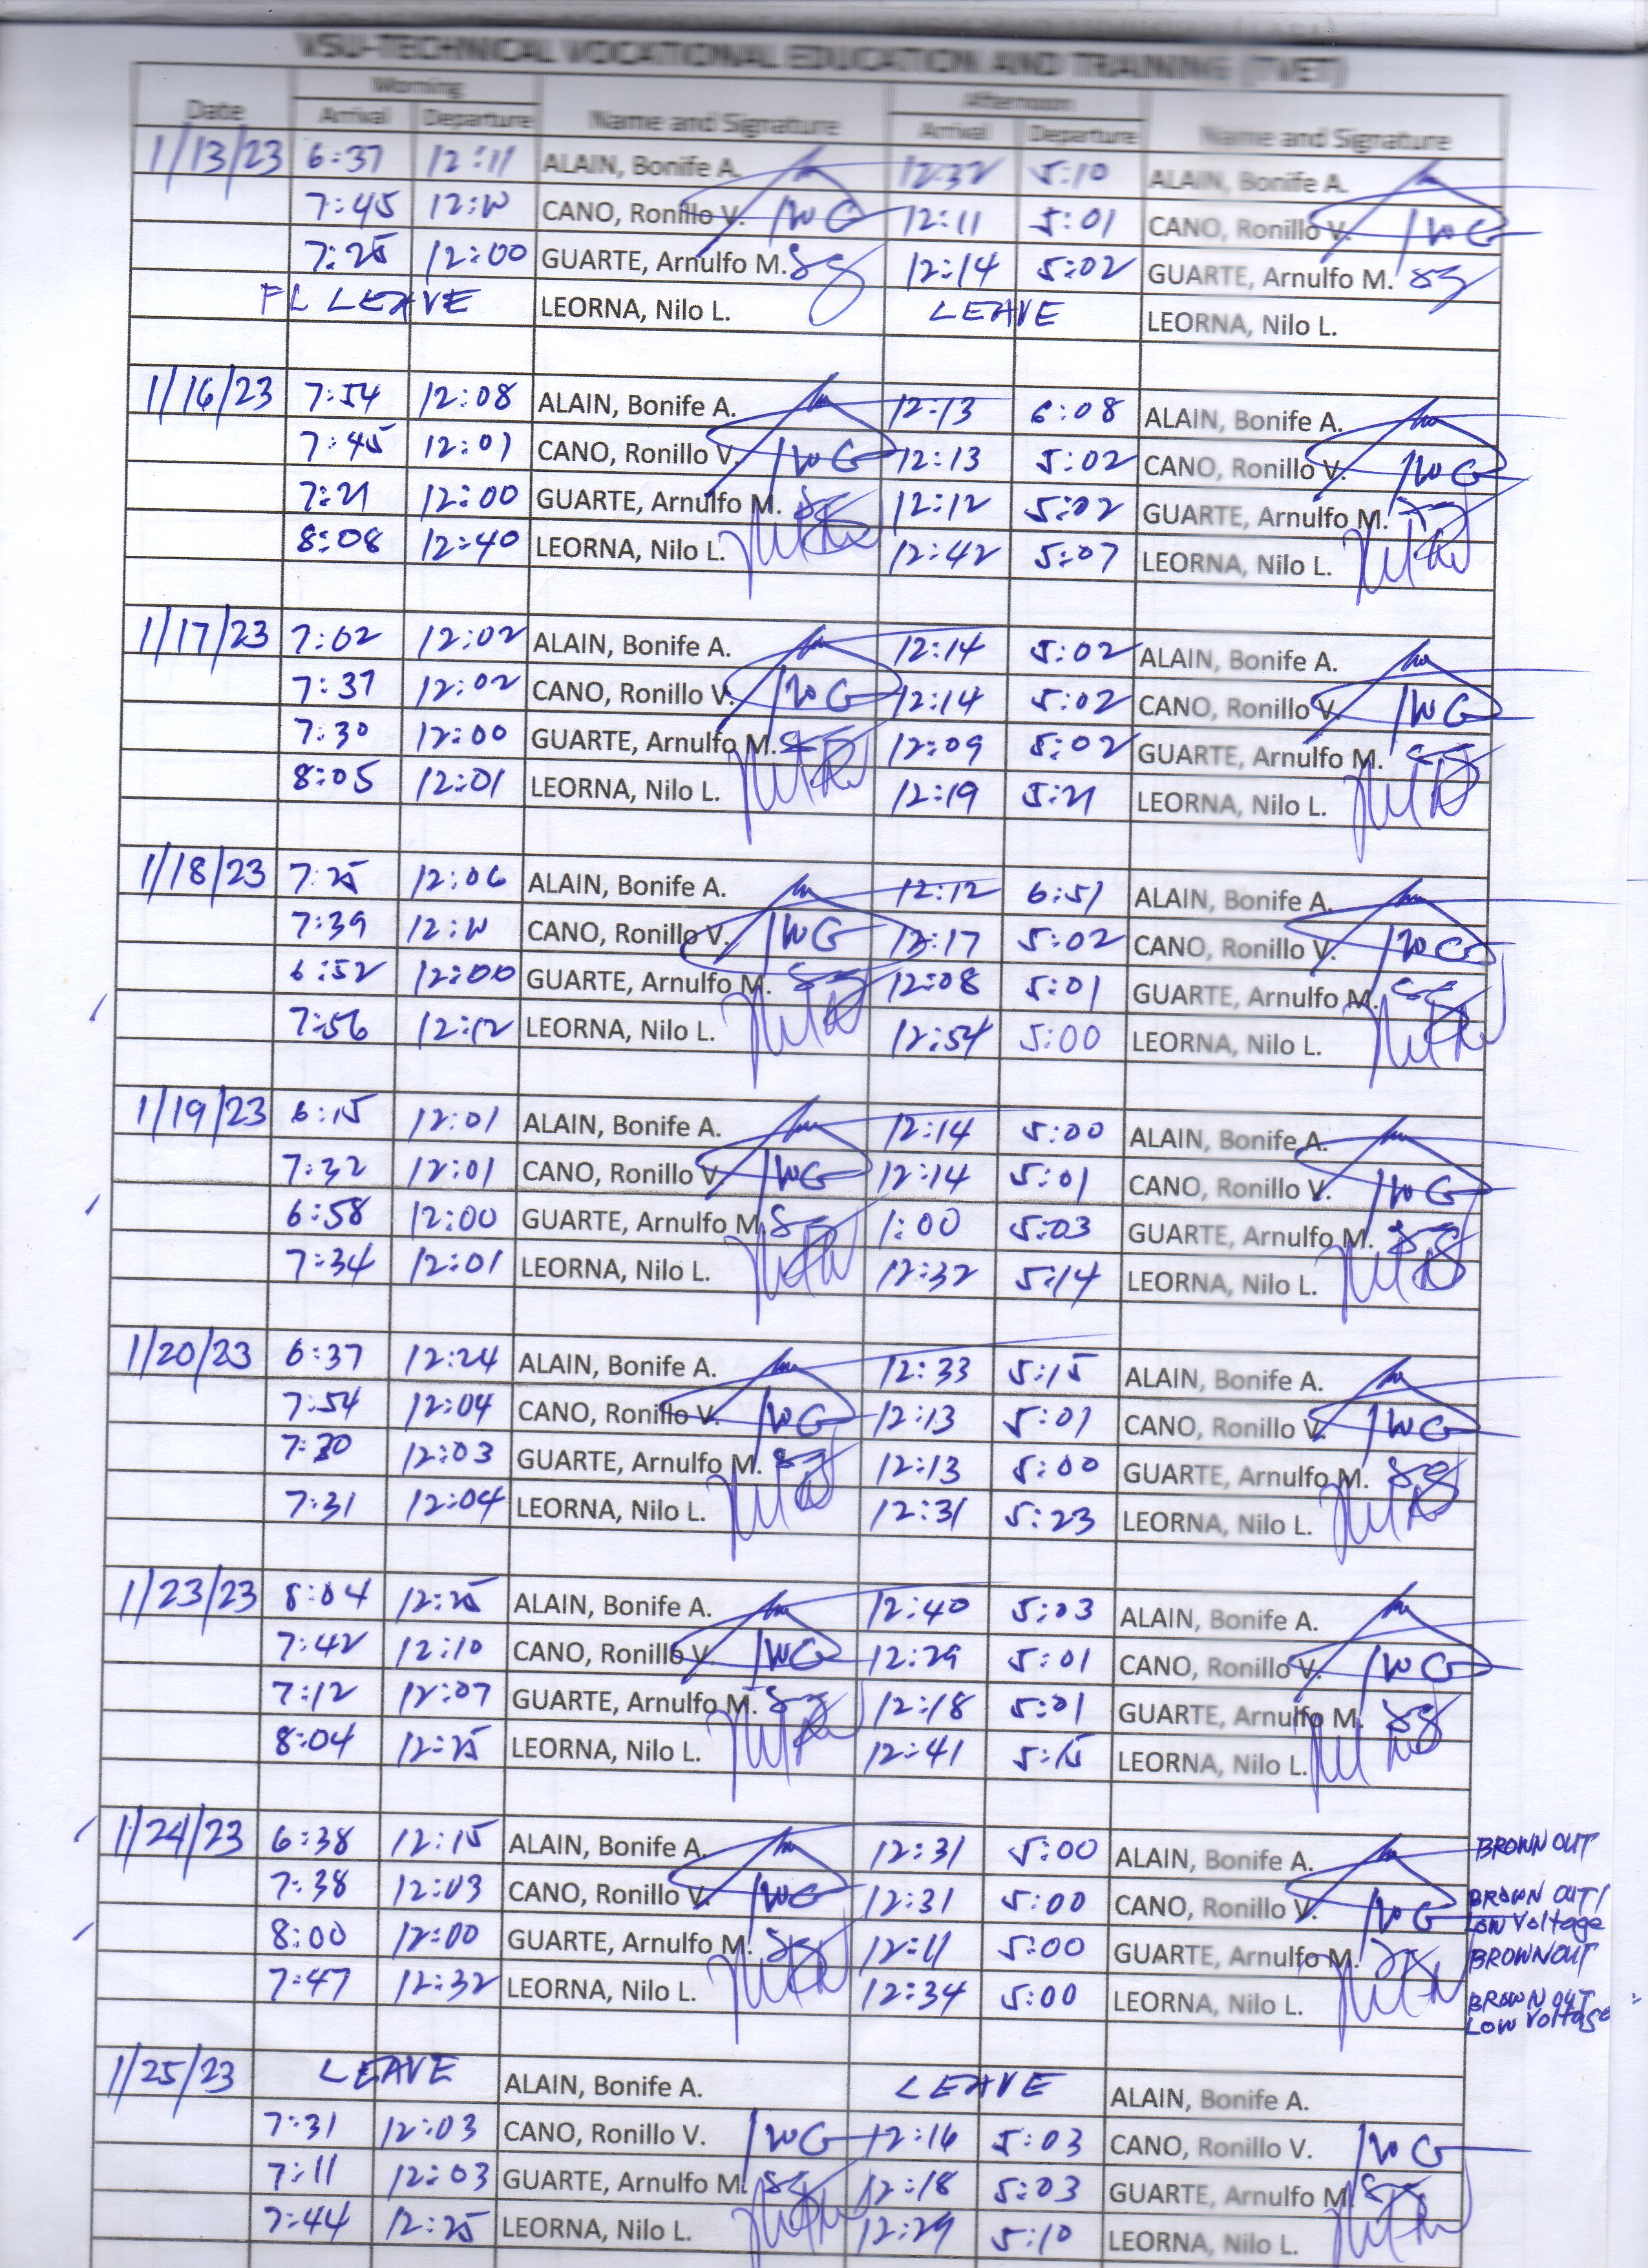 VSU-TECHNICAL VOCATIONAL EDUCATION AND TRAINING (TVET)
Morning Afternoon
Date Arrival Departure Name and Signature Arrival Departure Name and Signature
1/13/23 6:37 12:11 ALAIN, Bonife A. 12:32 5:10 ALAIN, Bonife A.
7:45 CANO, Ronillo V. 12:11 5:01 CANO, Ronillo V.
7:25 12:00 GUARTE, Arnulfo M. 12:14 5:02 GUARTE, Arnulfo M.
FL LEAVE LEORNA, Nilo L. LEAVE LEORNA, Nilo L.
1/16/23 7:54 12:08 ALAIN, Bonife A. 12:13 6:08 ALAIN, Bonife A.
7:45 12:01 CANO, Ronillo V. 12:13 5:02 CANO, Ronillo V.
7:21 12:00 GUARTE, Arnulfo M. 12:12 5:02 GUARTE, Arnulfo M.
8:08 12:40 LEORNA, Nilo L. 12:42 5:07 LEORNA, Nilo L.
1/17/23 7:02 12:02 ALAIN, Bonife A. 12:14 5:02 ALAIN, Bonife A.
7:37 12:02 CANO, Ronillo V. 12:14 5:02 CANO, Ronillo V.
7:30 12:00 GUARTE, Arnulfo M. 12:09 5:02 GUARTE, Arnulfo M.
8:05 12:01 LEORNA, Nilo L. 12:19 5:21 LEORNA, Nilo L.
1/18/23 7:25 12:06 ALAIN, Bonife A. 12:12 6:51 ALAIN, Bonife A.
7:39 CANO, Ronillo V. 12:17 5:02 CANO, Ronillo V.
6:52 12:00 GUARTE, Arnulfo M. 12:08 5:01 GUARTE, Arnulfo M.
7:56 12:12 LEORNA, Nilo L. 12:54 5:00 LEORNA, Nilo L.
1/19/23 6:15 12:01 ALAIN, Bonife A. 12:14 5:00 ALAIN, Bonife A.
7:32 12:01 CANO, Ronillo V. 12:14 5:01 CANO, Ronillo V.
6:58 12:00 GUARTE, Arnulfo M. 1:00 5:03 GUARTE, Arnulfo M.
7:34 12:01 LEORNA, Nilo L. 12:32 5:14 LEORNA, Nilo L.
1/20/23 6:37 12:24 ALAIN, Bonife A. 12:33 5:15 ALAIN, Bonife A.
7:54 12:04 CANO, Ronillo V. 12:13 5:01 CANO, Ronillo V.
7:30 12:03 GUARTE, Arnulfo M. 12:13 5:00 GUARTE, Arnulfo M.
7:31 12:04 LEORNA, Nilo L. 12:31 5:23 LEORNA, Nilo L.
1/23/23 8:04 12:25 ALAIN, Bonife A. 12:40 5:03 ALAIN, Bonife A.
7:42 12:10 CANO, Ronillo V. 12:29 5:01 CANO, Ronillo V.
7:12 12:07 GUARTE, Arnulfo M. 12:18 5:01 GUARTE, Arnulfo M.
8:04 12:25 LEORNA, Nilo L. 12:41 5:15 LEORNA, Nilo L.
1/24/23 6:38 12:15 ALAIN, Bonife A. 12:31 5:00 ALAIN, Bonife A. BROWN OUT
7:38 12:03 CANO, Ronillo V. 12:31 5:00 CANO, Ronillo V. BROWN OUT/
Low Voltage
8:00 12:00 GUARTE, Arnulfo M. 12:11 5:00 GUARTE, Arnulfo M. BROWNOUT
7:47 12:32 LEORNA, Nilo L. 12:34 5:00 LEORNA, Nilo L. BROWN OUT/
Low Voltage
1/25/23 LEAVE ALAIN, Bonife A. LEAVE ALAIN, Bonife A.
7:31 12:03 CANO, Ronillo V. 12:16 5:03 CANO, Ronillo V.
7:11 12:03 GUARTE, Arnulfo M. 12:18 5:03 GUARTE, Arnulfo M.
7:44 12:25 LEORNA, Nilo L. 12:29 5:10 LEORNA, Nilo L.